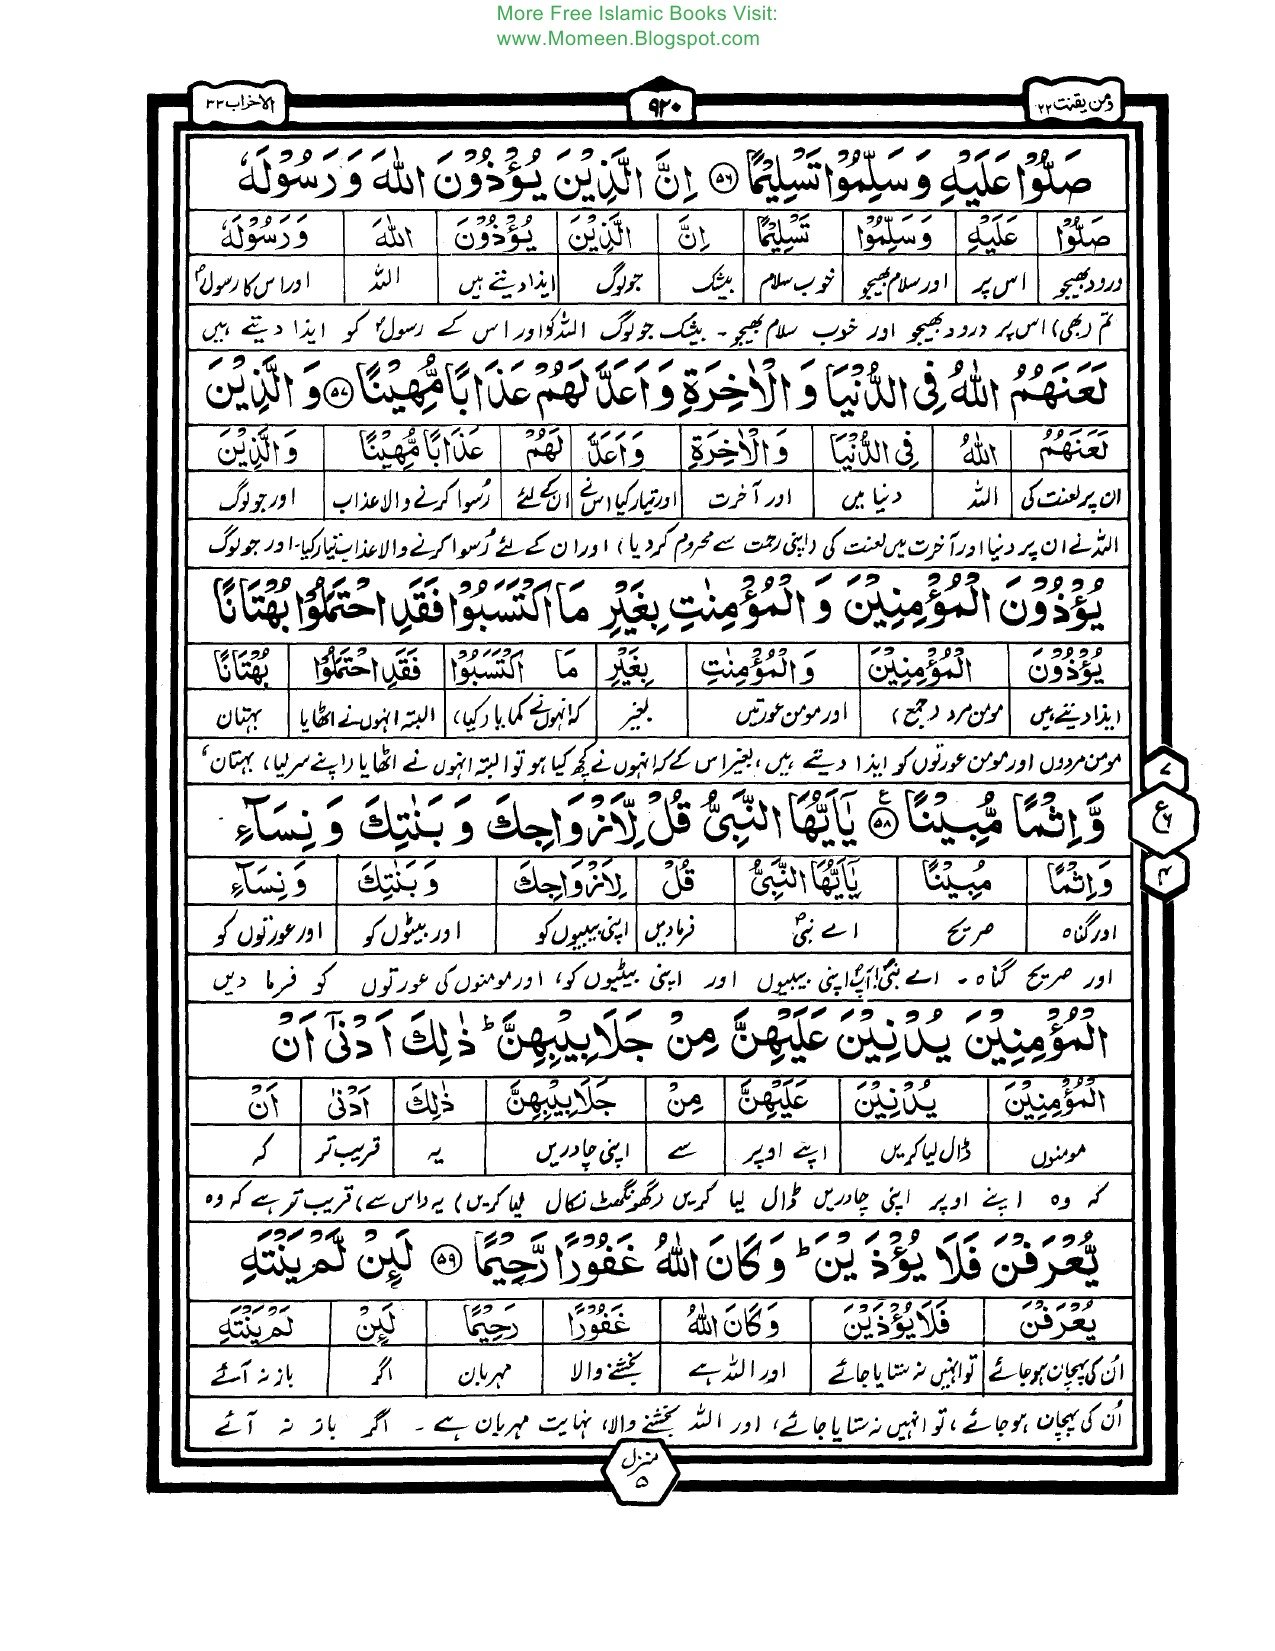 More Free Islamic Books Visit:
www.Momeen.Blogspot.com
ومن يقنت ۲۲
۹۲۰
الاحزاب ۳۳
صَلُّوْا عَلَيْهِ وَ سَلِّمُوْا تَسْلِيْمًا ۵۶ اِنَّ الَّذِيْنَ يُؤْذُوْنَ اللّٰهَ وَ رَسُوْلَهٗ
صَلُّوْا عَلَيْهِ وَسَلِّمُوْا تَسْلِيْمًا اِنَّ الَّذِيْنَ يُؤْذُوْنَ اللّٰهَ وَرَسُوْلَهٗ
درود بھیجو اس پر اور سلام بھیجو خوب سلام بیشک جو لوگ ایذا دیتے ہیں اللہ اور اس کا رسولؐ
تم (بھی) اس پر درود بھیجو اور خوب سلام بھیجو ۔ بیشک جو لوگ اللہ کو اور اس کے رسولؐ کو ایذا دیتے ہیں
لَعَنَهُمُ اللّٰهُ فِي الدُّنْيَا وَ الْاٰخِرَةِ وَ اَعَدَّ لَهُمْ عَذَابًا مُّهِيْنًا ۵۷ وَ الَّذِيْنَ
لَعَنَهُمُ اللّٰهُ فِي الدُّنْيَا وَالْاٰخِرَةِ وَاَعَدَّ لَهُمْ عَذَابًا مُّهِيْنًا وَالَّذِيْنَ
ان پر لعنت کی اللہ دنیا میں اور آخرت اور تیار کیا اس نے ان کے لئے رُسوا کرنے والا عذاب اور جو لوگ
اللہ نے ان پر دنیا اور آخرت میں لعنت کی (اپنی رحمت سے محروم کر دیا) اور ان کے لئے رُسوا کرنے والا عذاب تیار کیا۔ اور جو لوگ
يُؤْذُوْنَ الْمُؤْمِنِيْنَ وَ الْمُؤْمِنٰتِ بِغَيْرِ مَا اكْتَسَبُوْا فَقَدِ احْتَمَلُوْا بُهْتَانًا
يُؤْذُوْنَ الْمُؤْمِنِيْنَ وَالْمُؤْمِنٰتِ بِغَيْرِ مَا اكْتَسَبُوْا فَقَدِ احْتَمَلُوْا بُهْتَانًا
ایذا دیتے ہیں مومن مرد (جمع) اور مومن عورتیں بغیر کہ انہوں نے کمایا (کیا) البتہ انہوں نے اٹھایا بہتان
مومن مردوں اور مومن عورتوں کو ایذا دیتے ہیں، بغیر اس کے کہ انہوں نے کچھ کیا ہو تو البتہ انہوں نے اٹھایا (اپنے سر لیا) بہتان،
۷
وَّ اِثْمًا مُّبِيْنًا ۵۸ يٰۤاَيُّهَا النَّبِيُّ قُلْ لِّاَزْوَاجِكَ وَ بَنٰتِكَ وَ نِسَآءِ
ع ۶
وَاِثْمًا مُبِيْنًا يٰۤاَيُّهَا النَّبِيُّ قُلْ لِاَزْوَاجِكَ وَبَنٰتِكَ وَنِسَآءِ
۴
اور گناہ صریح اے نبیؐ فرمادیں اپنی بیبیوں کو اور بیٹوں کو اور عورتوں کو
اور صریح گناہ ۔ اے نبیؐ! آپؐ اپنی بیبیوں اور اپنی بیٹیوں کو، اور مومنوں کی عورتوں کو فرما دیں
الْمُؤْمِنِيْنَ يُدْنِيْنَ عَلَيْهِنَّ مِنْ جَلَابِيْبِهِنَّ ؕ ذٰلِكَ اَدْنٰۤى اَنْ
الْمُؤْمِنِيْنَ يُدْنِيْنَ عَلَيْهِنَّ مِنْ جَلَابِيْبِهِنَّ ذٰلِكَ اَدْنٰى اَنْ
مومنوں ڈال لیا کریں اپنے اوپر سے اپنی چادریں یہ قریب تر کہ
کہ وہ اپنے اوپر اپنی چادریں ڈال لیا کریں (گھونگھٹ نکال لیا کریں) یہ (اس سے) قریب تر ہے کہ وہ
يُّعْرَفْنَ فَلَا يُؤْذَيْنَ ؕ وَ كَانَ اللّٰهُ غَفُوْرًا رَّحِيْمًا ۵۹ لَئِنْ لَّمْ يَنْتَهِ
يُعْرَفْنَ فَلَا يُؤْذَيْنَ وَكَانَ اللّٰهُ غَفُوْرًا رَحِيْمًا لَئِنْ لَمْ يَنْتَهِ
اُن کی پہچان ہو جائے تو انہیں نہ ستایا جائے اور اللہ ہے بخشنے والا مہربان اگر باز نہ آئے
اُن کی پہچان ہو جائے، تو انہیں نہ ستایا جائے، اور اللہ بخشنے والا، نہایت مہربان ہے ۔ اگر باز نہ آئے
منزل ۵